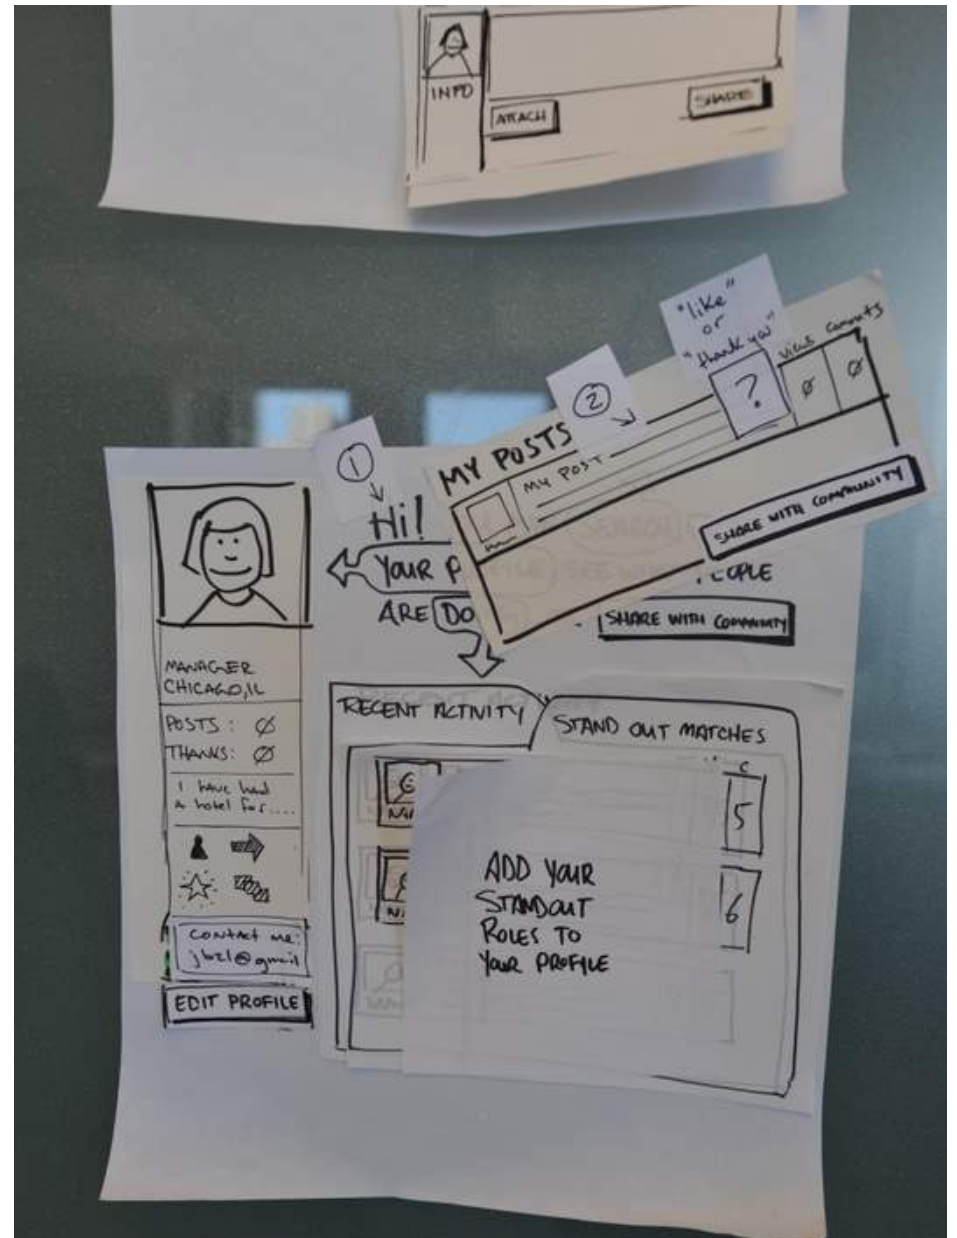 INFO
ATTACH
SHARE
"like"
or
"thank you"
Views Comments
?
Ø Ø
2
MY POSTS
MY POST
SHARE WITH COMMUNITY
1
Hi!
YOUR P
SEE
ARE DO
SHARE WITH COMMUNITY
MANAGER
CHICAGO, IL
POSTS: Ø
THANKS: Ø
I have had
a hotel for....
contact me:
jbzl@gmail
EDIT PROFILE
RECENT ACTIVITY
STAND OUT MATCHES
C
5
6
ADD YOUR
STANDOUT
ROLES TO
YOUR PROFILE